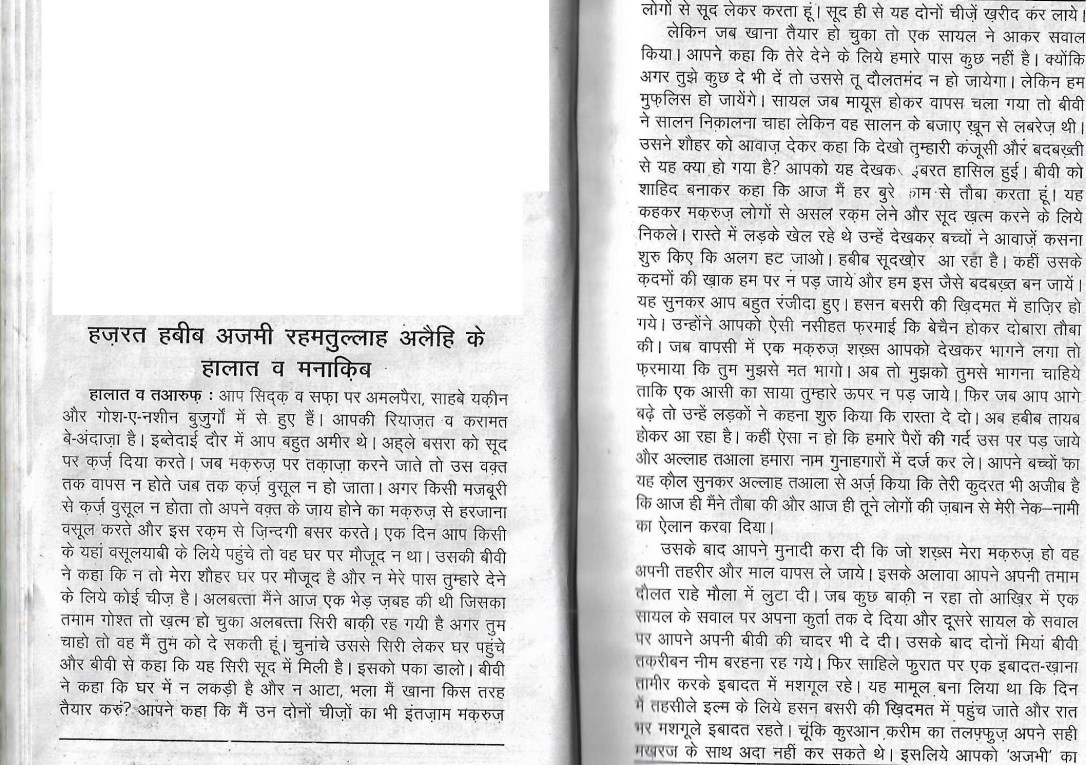 हज़रत हबीब अजमी रहमतुल्लाह अलैहि के
हालात व मनाक़िब
हालात व तआरुफ़ : आप सिद्क़ व सफ़ा पर अमलपैरा, साहबे यक़ीन
और गोश-ए-नशीन बुज़ुर्गों में से हुए हैं। आपकी रियाज़त व करामत
बे-अंदाज़ा है। इब्तेदाई दौर में आप बहुत अमीर थे। अह्ले बसरा को सूद
पर क़र्ज़ दिया करते। जब मक़रुज़ पर तक़ाज़ा करने जाते तो उस वक़्त
तक वापस न होते जब तक क़र्ज़ वुसूल न हो जाता। अगर किसी मजबूरी
से क़र्ज़ वुसूल न होता तो अपने वक़्त के जाय होने का मक़रुज़ से हरजाना
वसूल करते और इस रक़म से ज़िन्दगी बसर करते। एक दिन आप किसी
के यहां वसूलयाबी के लिये पहुंचे तो वह घर पर मौजूद न था। उसकी बीवी
ने कहा कि न तो मेरा शौहर घर पर मौजूद है और न मेरे पास तुम्हारे देने
के लिये कोई चीज़ है। अलबत्ता मैंने आज एक भेड़ ज़बह की थी जिसका
तमाम गोश्त तो ख़त्म हो चुका अलबत्ता सिरी बाक़ी रह गयी है अगर तुम
चाहो तो वह मैं तुम को दे सकती हूं। चुनांचे उससे सिरी लेकर घर पहुंचे
और बीवी से कहा कि यह सिरी सूद में मिली है। इसको पका डालो। बीवी
ने कहा कि घर में न लकड़ी है और न आटा, भला मैं खाना किस तरह
तैयार करुं? आपने कहा कि मैं उन दोनों चीज़ों का भी इंतज़ाम मक़रुज़
लोगों से सूद लेकर करता हूं। सूद ही से यह दोनों चीज़ें ख़रीद कर लाये।
लेकिन जब खाना तैयार हो चुका तो एक सायल ने आकर सवाल
किया। आपने कहा कि तेरे देने के लिये हमारे पास कुछ नहीं है। क्योंकि
अगर तुझे कुछ दे भी दें तो उससे तू दौलतमंद न हो जायेगा। लेकिन हम
मुफ़लिस हो जायेंगे। सायल जब मायूस होकर वापस चला गया तो बीवी
ने सालन निकालना चाहा लेकिन वह सालन के बजाए ख़ून से लबरेज़ थी।
उसने शौहर को आवाज़ देकर कहा कि देखो तुम्हारी कंजूसी और बदबख़्ती
से यह क्या हो गया है? आपको यह देखक इबरत हासिल हुई। बीवी को
शाहिद बनाकर कहा कि आज मैं हर बुरे काम से तौबा करता हूं। यह
कहकर मक़रुज़ लोगों से असल रक़म लेने और सूद ख़त्म करने के लिये
निकले। रास्ते में लड़के खेल रहे थे उन्हें देखकर बच्चों ने आवाज़ें कसना
शुरु किए कि अलग हट जाओ। हबीब सूदखोर आ रहा है। कहीं उसके
क़दमों की ख़ाक हम पर न पड़ जाये और हम इस जैसे बदबख़्त बन जायें।
यह सुनकर आप बहुत रंजीदा हुए। हसन बसरी की ख़िदमत में हाज़िर हो
गये। उन्होंने आपको ऐसी नसीहत फ़रमाई कि बेचैन होकर दोबारा तौबा
की। जब वापसी में एक मक़रुज़ शख़्स आपको देखकर भागने लगा तो
फ़रमाया कि तुम मुझसे मत भागो। अब तो मुझको तुमसे भागना चाहिये
ताकि एक आसी का साया तुम्हारे ऊपर न पड़ जाये। फिर जब आप आगे
बढ़े तो उन्हें लड़कों ने कहना शुरु किया कि रास्ता दे दो। अब हबीब तायब
होकर आ रहा है। कहीं ऐसा न हो कि हमारे पैरों की गर्द उस पर पड़ जाये
और अल्लाह तआला हमारा नाम गुनाहगारों में दर्ज कर ले। आपने बच्चों का
यह क़ौल सुनकर अल्लाह तआला से अर्ज़ किया कि तेरी क़ुदरत भी अजीब है
कि आज ही मैंने तौबा की और आज ही तूने लोगों की ज़बान से मेरी नेक–नामी
का ऐलान करवा दिया।
उसके बाद आपने मुनादी करा दी कि जो शख़्स मेरा मक़रुज़ हो वह
अपनी तहरीर और माल वापस ले जाये। इसके अलावा आपने अपनी तमाम
दौलत राहे मौला में लुटा दी। जब कुछ बाक़ी न रहा तो आख़िर में एक
सायल के सवाल पर अपना कुर्ता तक दे दिया और दूसरे सायल के सवाल
पर आपने अपनी बीवी की चादर भी दे दी। उसके बाद दोनों मियां बीवी
तक़रीबन नीम बरहना रह गये। फिर साहिले फ़ुरात पर एक इबादत-ख़ाना
तामीर करके इबादत में मशगूल रहे। यह मामूल बना लिया था कि दिन
में तहसीले इल्म के लिये हसन बसरी की ख़िदमत में पहुंच जाते और रात
भर मशगूले इबादत रहते। चूंकि क़ुरआन करीम का तलफ़्फ़ुज़ अपने सही
मख़रज के साथ अदा नहीं कर सकते थे। इसलिये आपको 'अजमी' का